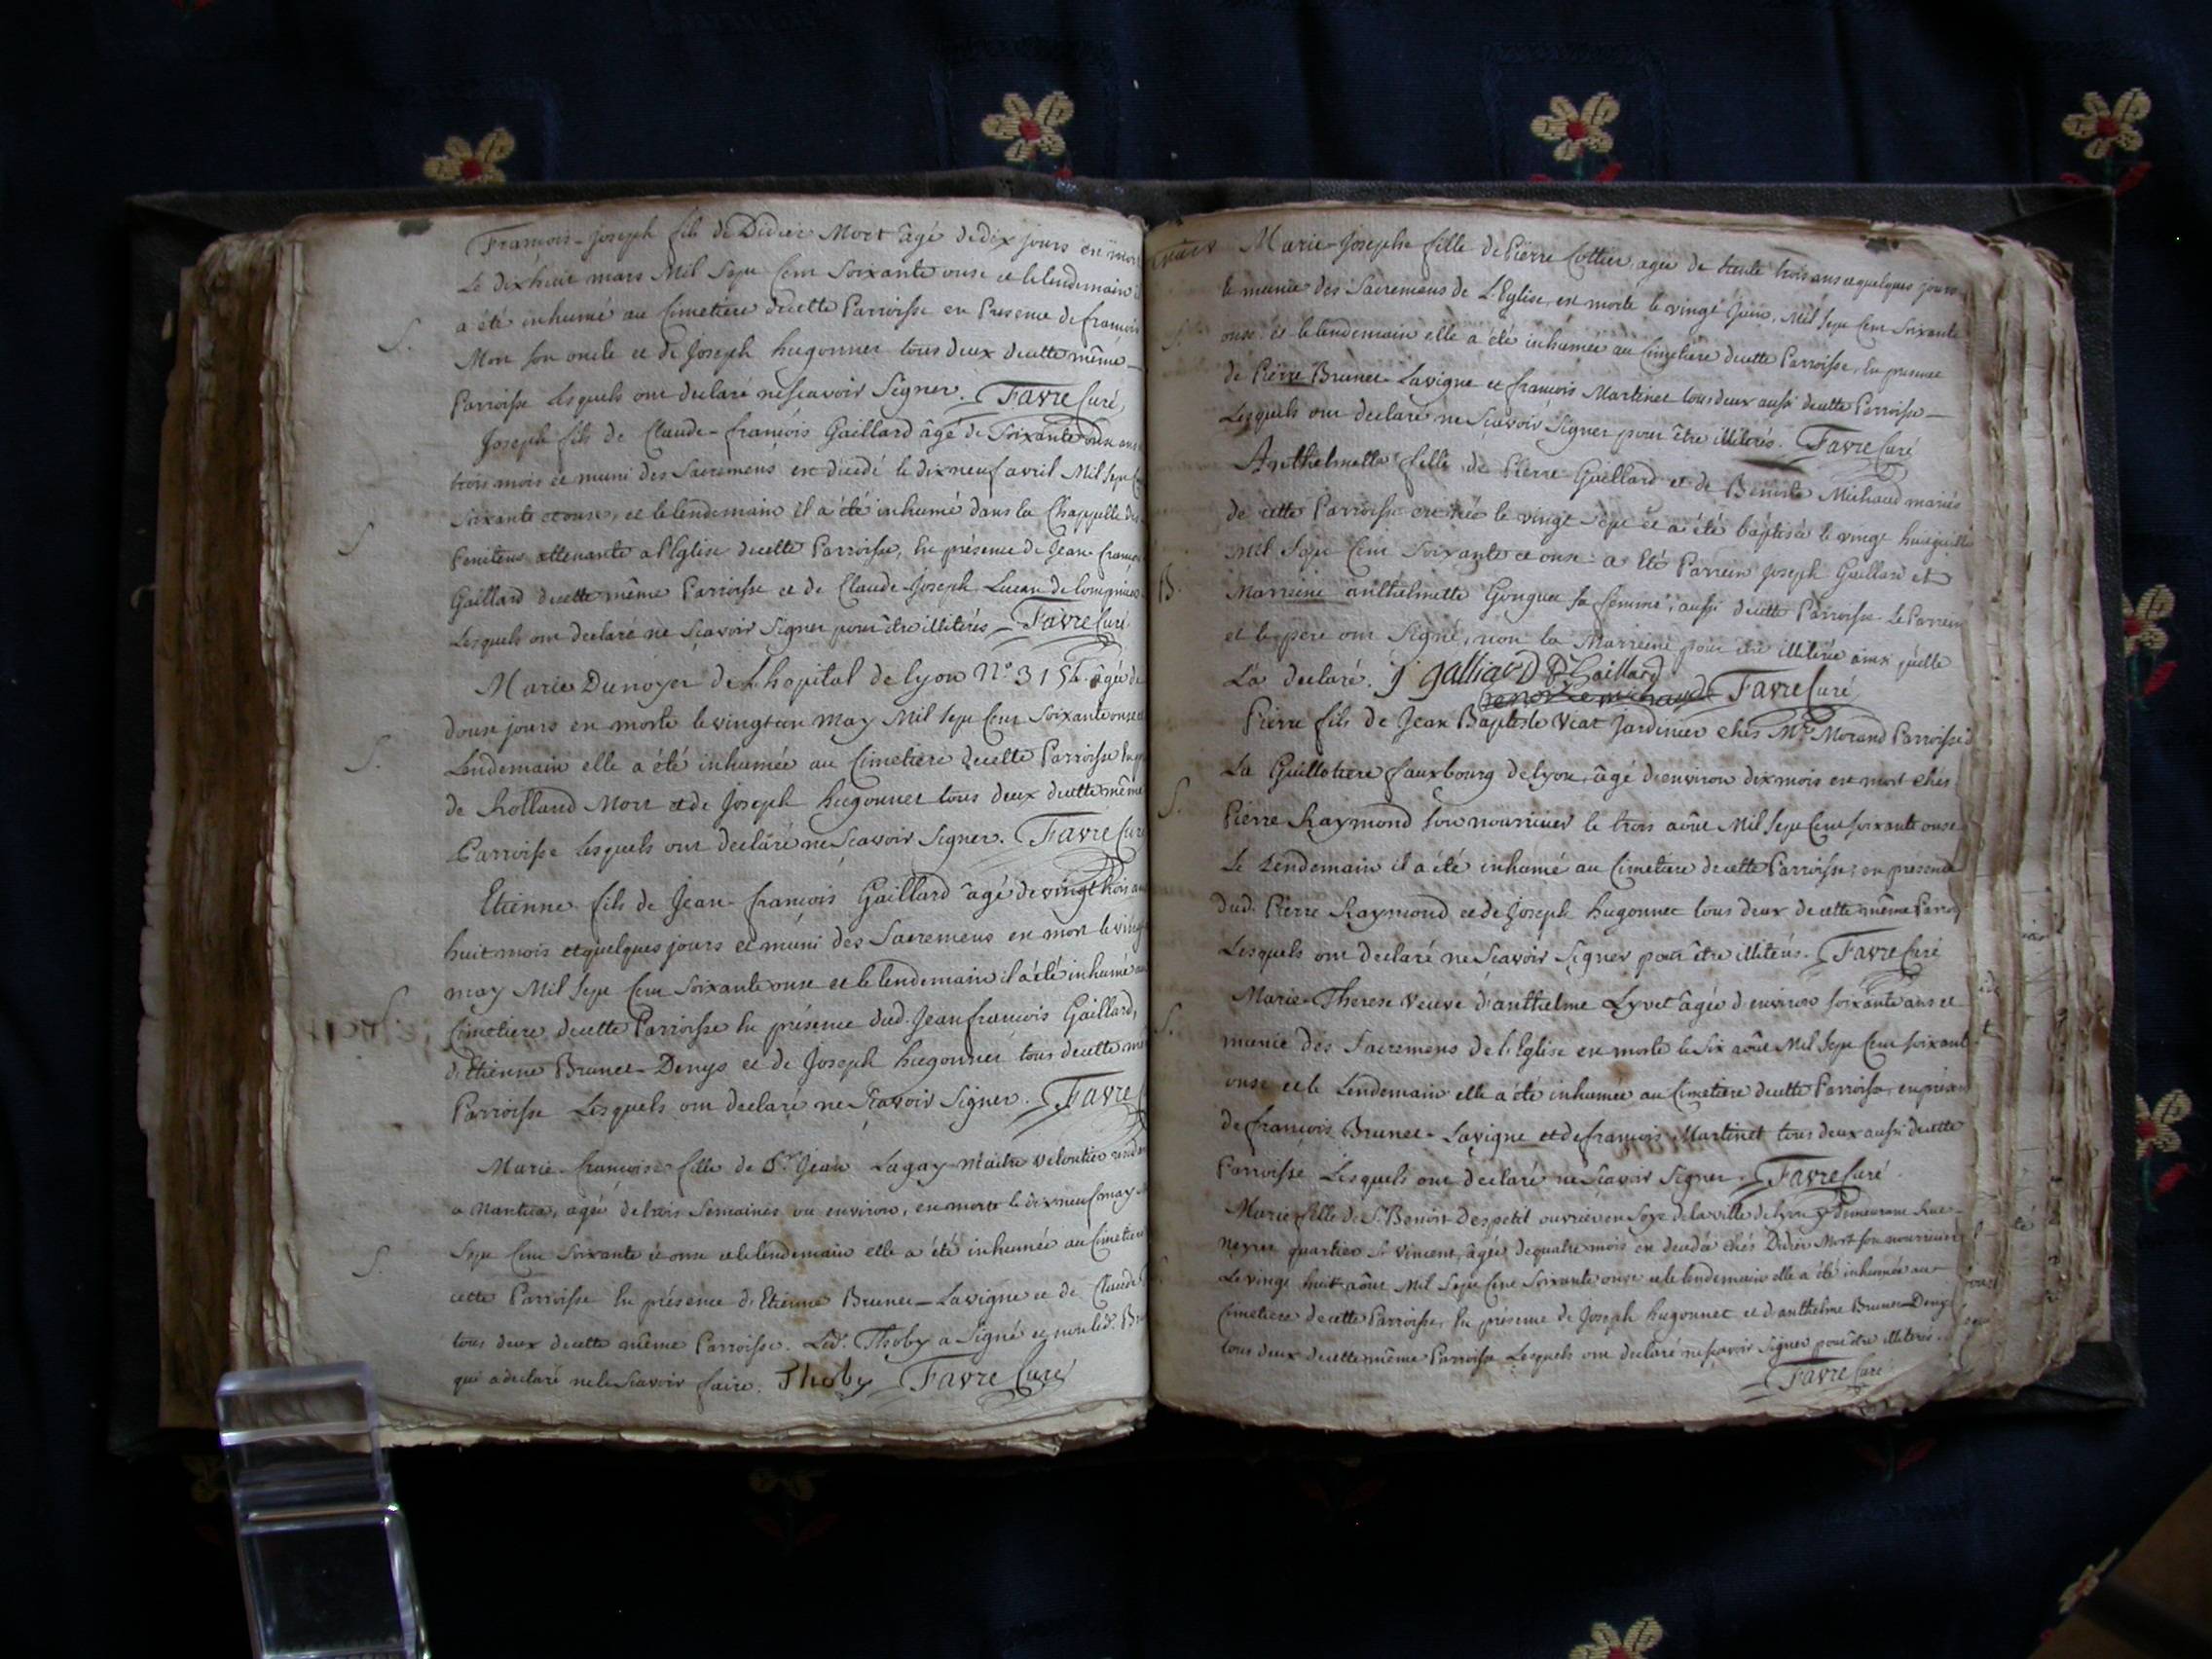 François-Joseph fils de Didier Mort âgé de dix jours est mort
Le dix huit mars Mil Sept Cent Soixante onse et le lendemain
a été inhumé au Cimetiere de cette Parroisse en Presence de françois
Mort son oncle et de Joseph hugonnet tous deux de cette même
Parroisse Lesquels ont declaré ne scavoir Signer. Favre Curé
Joseph fils de Claude-françois Gaillard âgé de Soixante onse ans
trois mois et muni des Sacremens est décédé le dixneuf avril Mil Sept
Soixante et onse, et le lendemain il a été inhumé dans la Chappelle des
Penitens attenante a l'Eglise de cette Parroisse, En présence de Jean françois
Gaillard de cette même Parroisse et de Claude-Joseph
Lesquels ont declaré ne Scavoir Signer pour être illiterés Favre Curé
S.
S
Marie Dunoyer de L'hopital de lyon N° 3154 âgée de
douse jours est morte le vingt un May Mil Sept Cent Soixante onse et
Lendemain elle a été inhumée au Cimetiere de cette Parroisse
de Rolland Mort et de Joseph hugonnet tous deux de cette même
Parroisse Lesquels ont declaré ne Scavoir Signer. Favre Curé
S.
Etienne fils de Jean-françois Gaillard âgé de vingt trois ans
huit mois et quelques jours et muni des Sacremens est mort le vingt
may Mil Sept Cent Soixante onse et le lendemain il a été inhumé au
Cimetiere de cette Parroisse En présence dud. Jean françois Gaillard,
d'Etienne Brunet-Denys et de Joseph hugonnet tous de cette
Parroisse Lesquels ont declaré ne Scavoir Signer. Favre
S
Marie-françoise fille de Sr. Jean Lagay Maitre veloutier
a Nantua, âgée de trois Semaines ou environ, est morte le dixneuf may
Sept Cent Soixante et onse et le lendemain elle a été inhumée au Cimetiere
cette Parroisse En présence d'Etienne Brunet-Lavigne et de Claude
tous deux de cette même Parroisse. Led. Thoby a Signé et non led.
qui a declaré ne le Scavoir faire. Thoby Favre Curé
S.
Marie-Josephe fille de Pierre Cottier, agée de trente trois ans et quelques jours
et munie des Sacremens de L'Eglise, est morte le vingt Juin, Mil Sept Cent Soixante
onse et le lendemain elle a été inhumée au Cimetiere de cette Parroisse, En presence
de Pierre Brunet-Lavigne et françois Martinet tous deux aussi de cette Parroisse
Lesquels ont declaré ne Scavoir Signer pour être illiterés. Favre Curé
S.
Anthelmette fille de Pierre Gaillard et de Benoite Michaud mariés
de cette Parroisse est née le vingt sept et a été baptisée le vingt huit
Mil Sept Cent Soixante et onse. a Eté Parrein Joseph Gaillard et
Marreine anthelmette sa femme, aussi de cette Parroisse. Le Parrein
et le pere ont Signé, non la Marreine pour être illiterée ainsi qu'elle
L'a declaré. J galliard P. Gaillard
Favre Curé
B.
Pierre fils de Jean Baptiste Viat Jardinier chés Mr. Morand Parroisse
La Guillotiere fauxbourg de lyon, âgé d'environ dix mois est mort chés
Pierre Raymond son nourricier le trois aôut Mil Sept Cent soixante onse
Le Lendemain il a été inhumé au Cimetiere de cette Parroisse; en présence
dud. Pierre Raymond et de Joseph hugonnet tous deux de cette même
Lesquels ont declaré ne Scavoir Signer pour être illiterés. Favre Curé
S.
Marie-Therese veuve d'anthelme Lyvet âgée d'environ soixante ans et
munie des Sacremens de l'Eglise est morte le Six aôut Mil Sept Cent soixante
onse et le Lendemain elle a été inhumée au Cimetiere de cette Parroisse, en
de françois Brunet-Lavigne et de françois Martinet tous deux aussi de cette
Parroisse Lesquels ont declaré ne Scavoir Signer. Favre Curé
S.
Marie fille de Sr. Benoit Despetit ouvrier en Soye de la ville de lyon y demeurant Rue
Neyret quartier St. Vincent, âgée de quatre mois est decedée chés Didier Mort son nourricier
Le vingt huit aôut Mil Sept Cent Soixante onse et le lendemain elle a été inhumée au
Cimetiere de cette Parroisse, En présence de Joseph hugonnet et d'anthelme Brunet-Denys
tous deux de cette même Parroisse Lesquels ont declaré ne scavoir Signer pour être illiterés.
Favre Curé